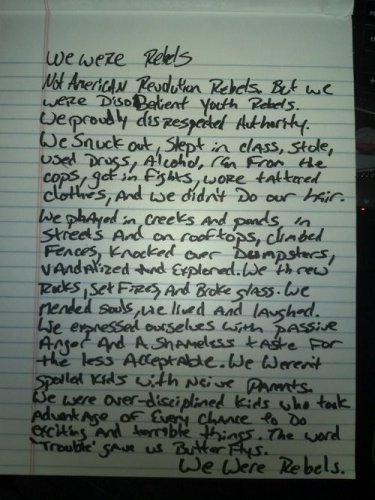 We Were Rebels
Not American Revolution Rebels. But we
were DisoBedient Youth Rebels.
We proudly disrespected Authority.
We Snuck out, Slept in class, Stole,
used Drugs, Alcohol, ran From the
cops, got in fights, wore tattered
clothes, And we didn't Do our hair.
We played in creeks and ponds, in
Streets And on rooftops, climbed
Fences, Knocked over Dumpsters,
vandalized and Explored. We threw
Rocks, Set Fires, And Broke glass. We
mended souls, we lived and laughed.
We expressed ourselves with passive
Anger And A Shameless taste For
the less Acceptable. We Weren't
Spoiled Kids with Naive parents.
We were over-disciplined Kids who took
Advantage of Every Chance to Do
Exciting And terrible things. The word
"Trouble" gave us ButterFlys.
We Were Rebels.